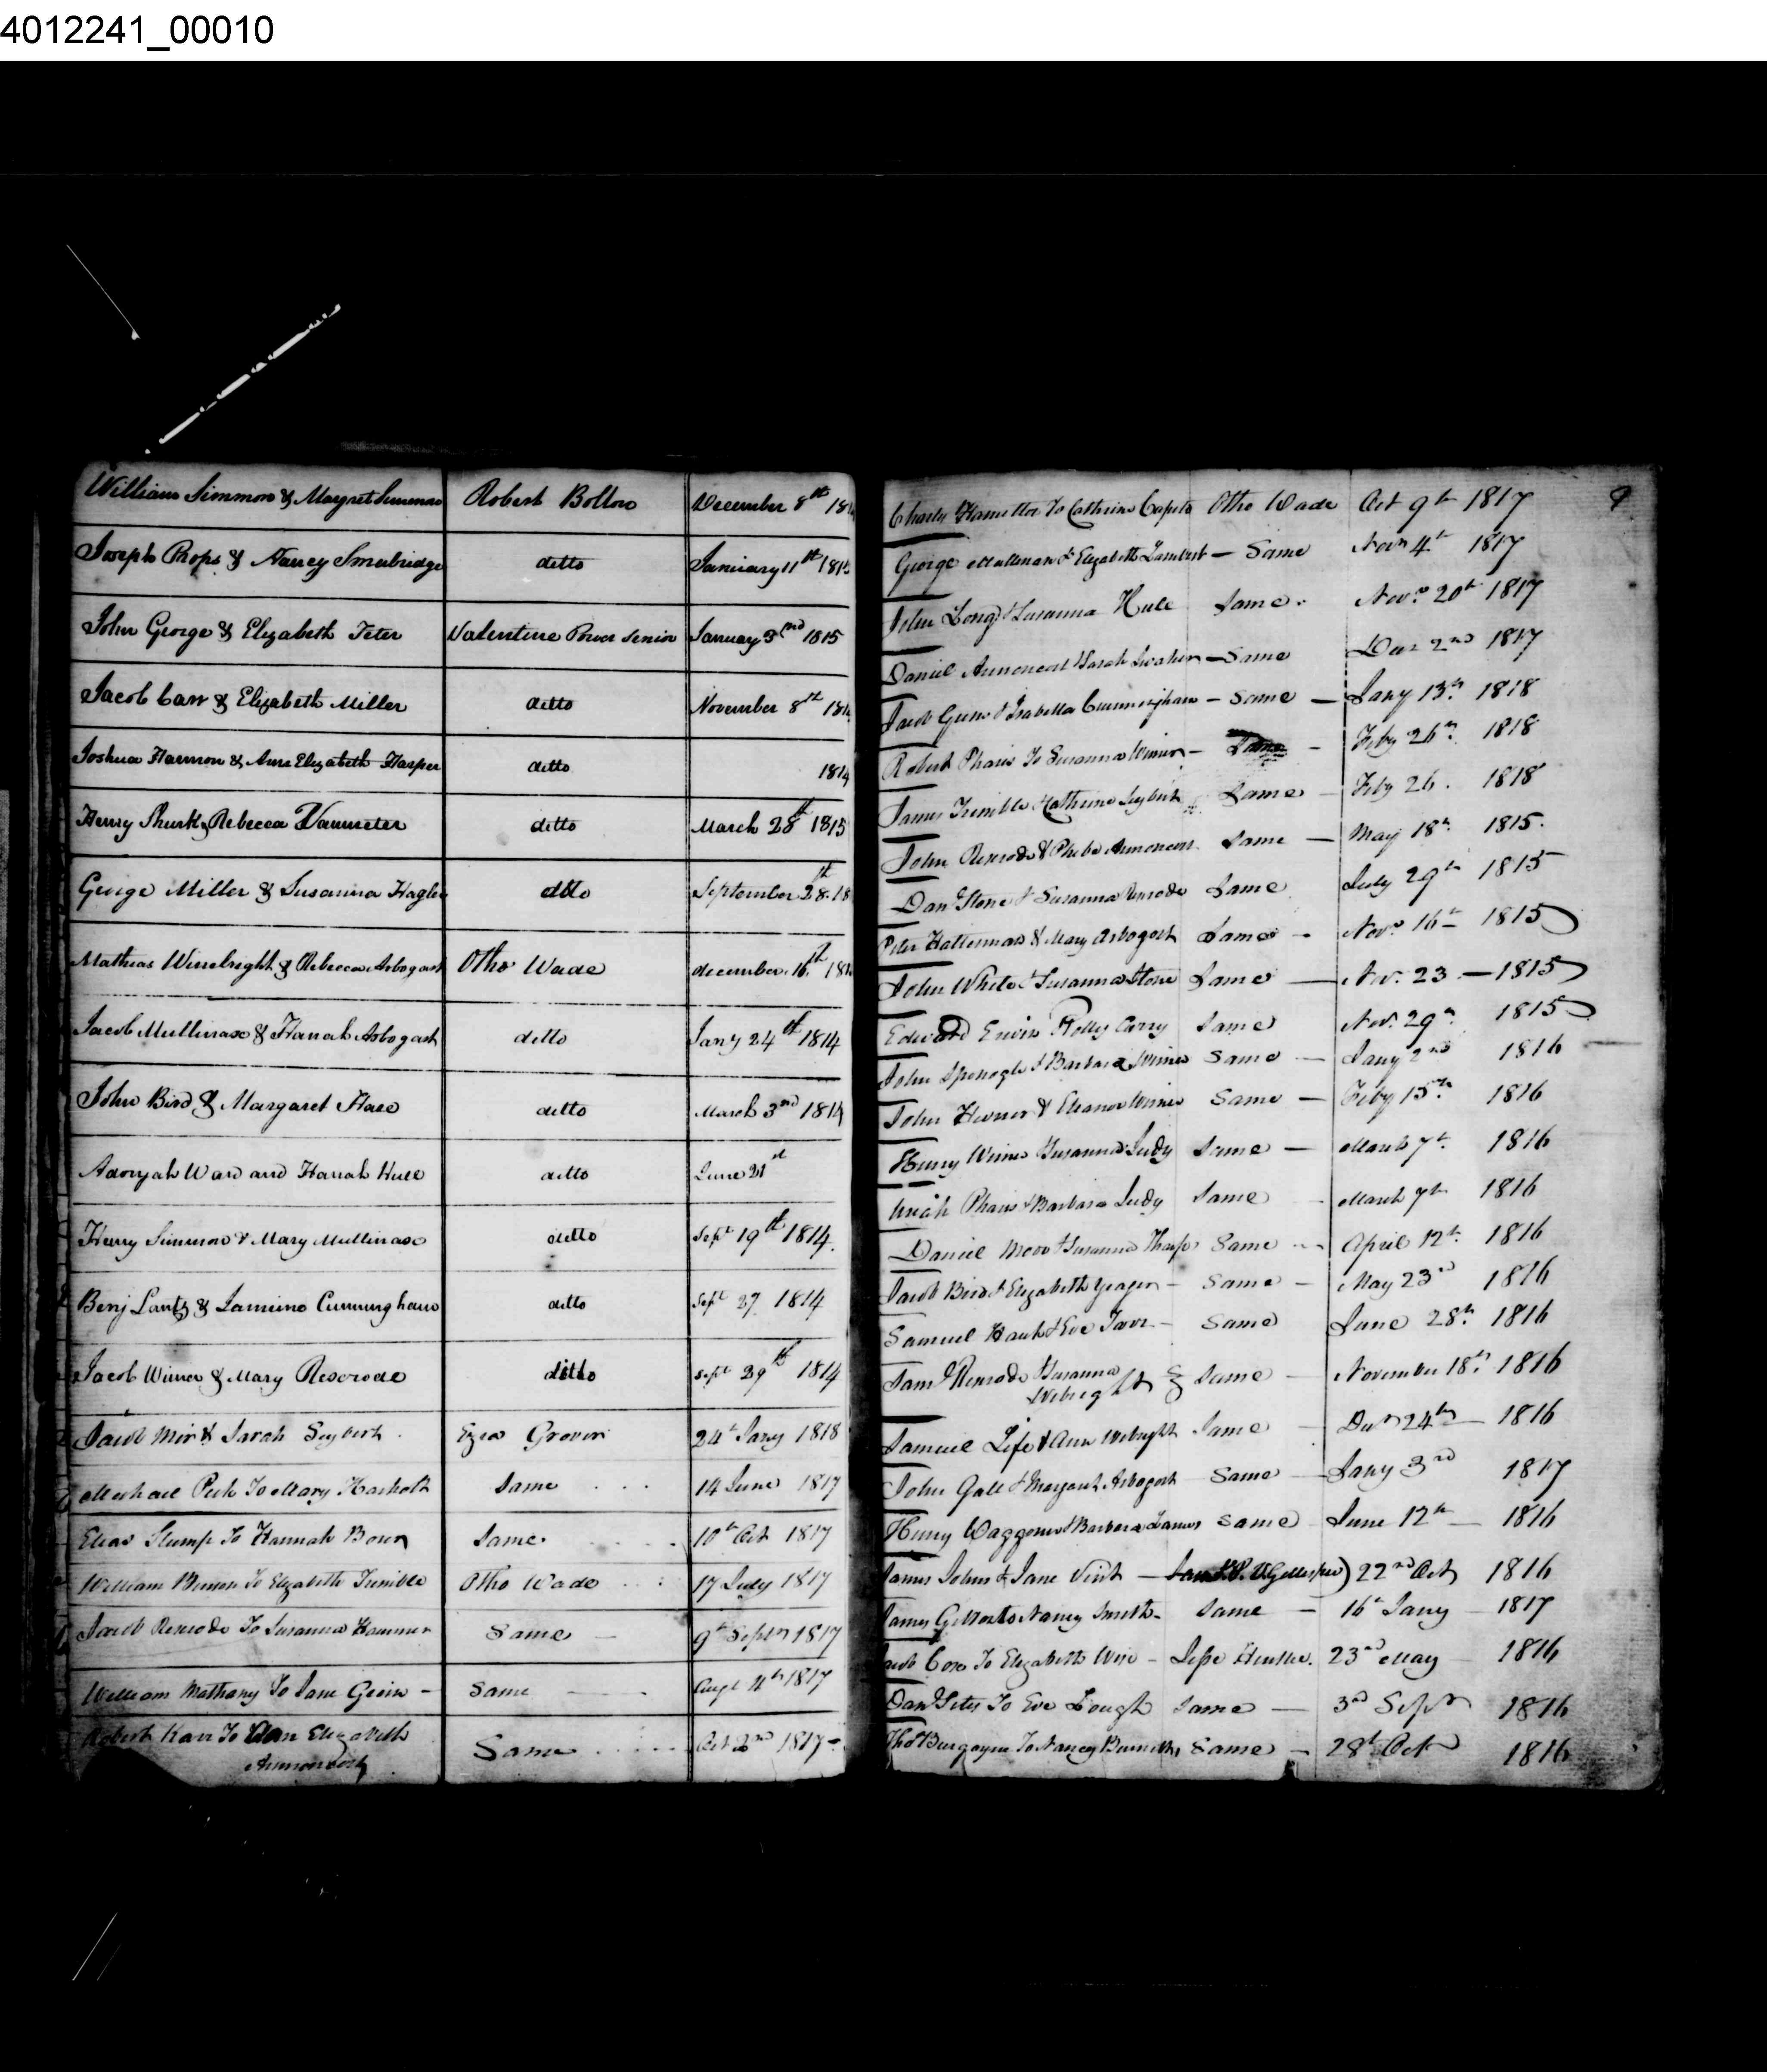 4012241_00010
William Simmon & Margret Simmon Robert Bolton December 8th 181
Joseph Props & Nancy Smabridge ditto January 11th 1815
John George & Elizabeth Teter Valentine Power Senior January 3rd 1815
Jacob Carr & Elizabeth Miller ditto November 8th 181
Joshua Harmon & Ann Elizabeth Harper ditto 1814
Henry Shurk & Rebecca Vanmeter ditto March 28th 1815
George Miller & Susanna Hagler ditto September 28th 18
Mathias Winebright & Rebecca Arbogast Otho Wade december 16th 181
Jacob Mullinax & Hanah Arbogast ditto Jany 24th 1814
John Bird & Margaret Hase ditto March 3rd 1814
Adonjah Ward and Hanah Hull ditto June 21st
Henry Simmon & Mary Mullinax ditto Sept 19th 1814.
Benj Lantz & Jamimo Cunningham ditto Sept 27 1814
Jacob Wimer & Mary Rexrode ditto Sept 29th 1814
Jacob Mir & Sarah Seybert. Ezra Grover 24th Jany 1818
Michael Peck To Mary Harholt Same 14 June 1817
Elias Stump To Hannah Bown Same. 10th Oct 1817
William Benson To Elizabeth Trimble Otho Wade 17 July 1817
Jacob Rexrode To Susanna Hammer Same 9th Septr 1817
William Mathany To Jane Green - Same Augt 11th 1817
Robert Karr To Ann Elizabeth
Armontrout Same Oct 2nd 1817 -
9
Charles Hamilton To Cathrine Capito Otho Wade Oct 9th 1817
George Mallenax & Elizabeth Lambert - Same Novr 4th 1817
John Long & Susanna Hull Same. Novr 20th 1817
Daniel Armoncost & Sarah - Same Decr 2nd 1817
Jacob Gum & Isabella Cunningham - Same - Jany 13th 1818
Robert Pharis To Susanna Wimer - Same - Feby 26th 1818
James Trimble & Cathrine Seybert Same - Feby 26. 1818
John Rexrode & Phebe Armoncost Same - May 18th 1815.
Danl Stone & Susanna Rexrode Same July 29th 1815
Peter Halterman & Mary Arbogast Same - Novr 16th 1815
John White & Susanna Stone Same - Nov. 23 - 1815
Edward Erwin & Polly Curry Same Nov. 29th 1815
John Sponogle & Barbara Wimer Same - Jany 2nd 1816
John Hevner & Eleanor Wimer Same - Feby 15th 1816
Henry Wimer & Susanna Judy Same - March 7th 1816
Uriah Pharis & Barbara Judy Same - March 7th 1816
Daniel Moov & Susanna Tharp Same - April 12th 1816
Jacob Bird & Elizabeth Yeager - Same - May 23rd 1816
Samuel Hauk & Eve - Same June 28th 1816
Saml Rexrode & Susanna
Wibright Same - November 18th 1816
Samuel Life & Ann Wibright Same - Decr 24th - 1816
John Gall & Margaret Arbogast Same - Jany 3rd 1817
Henry Waggoner & Barbara Same June 12th - 1816
James Johns & Jane Vint - 22nd Oct 1816
James Gilmor to Nancy Smith - Same - 16th Jany - 1817
Jacob Cox To Elizabeth Wise - 23rd May 1816
Danl Teter To Eve Lough Same - 3rd Septr 1816
Thos Burgoyne To Nancy Same - 28th Oct 1816